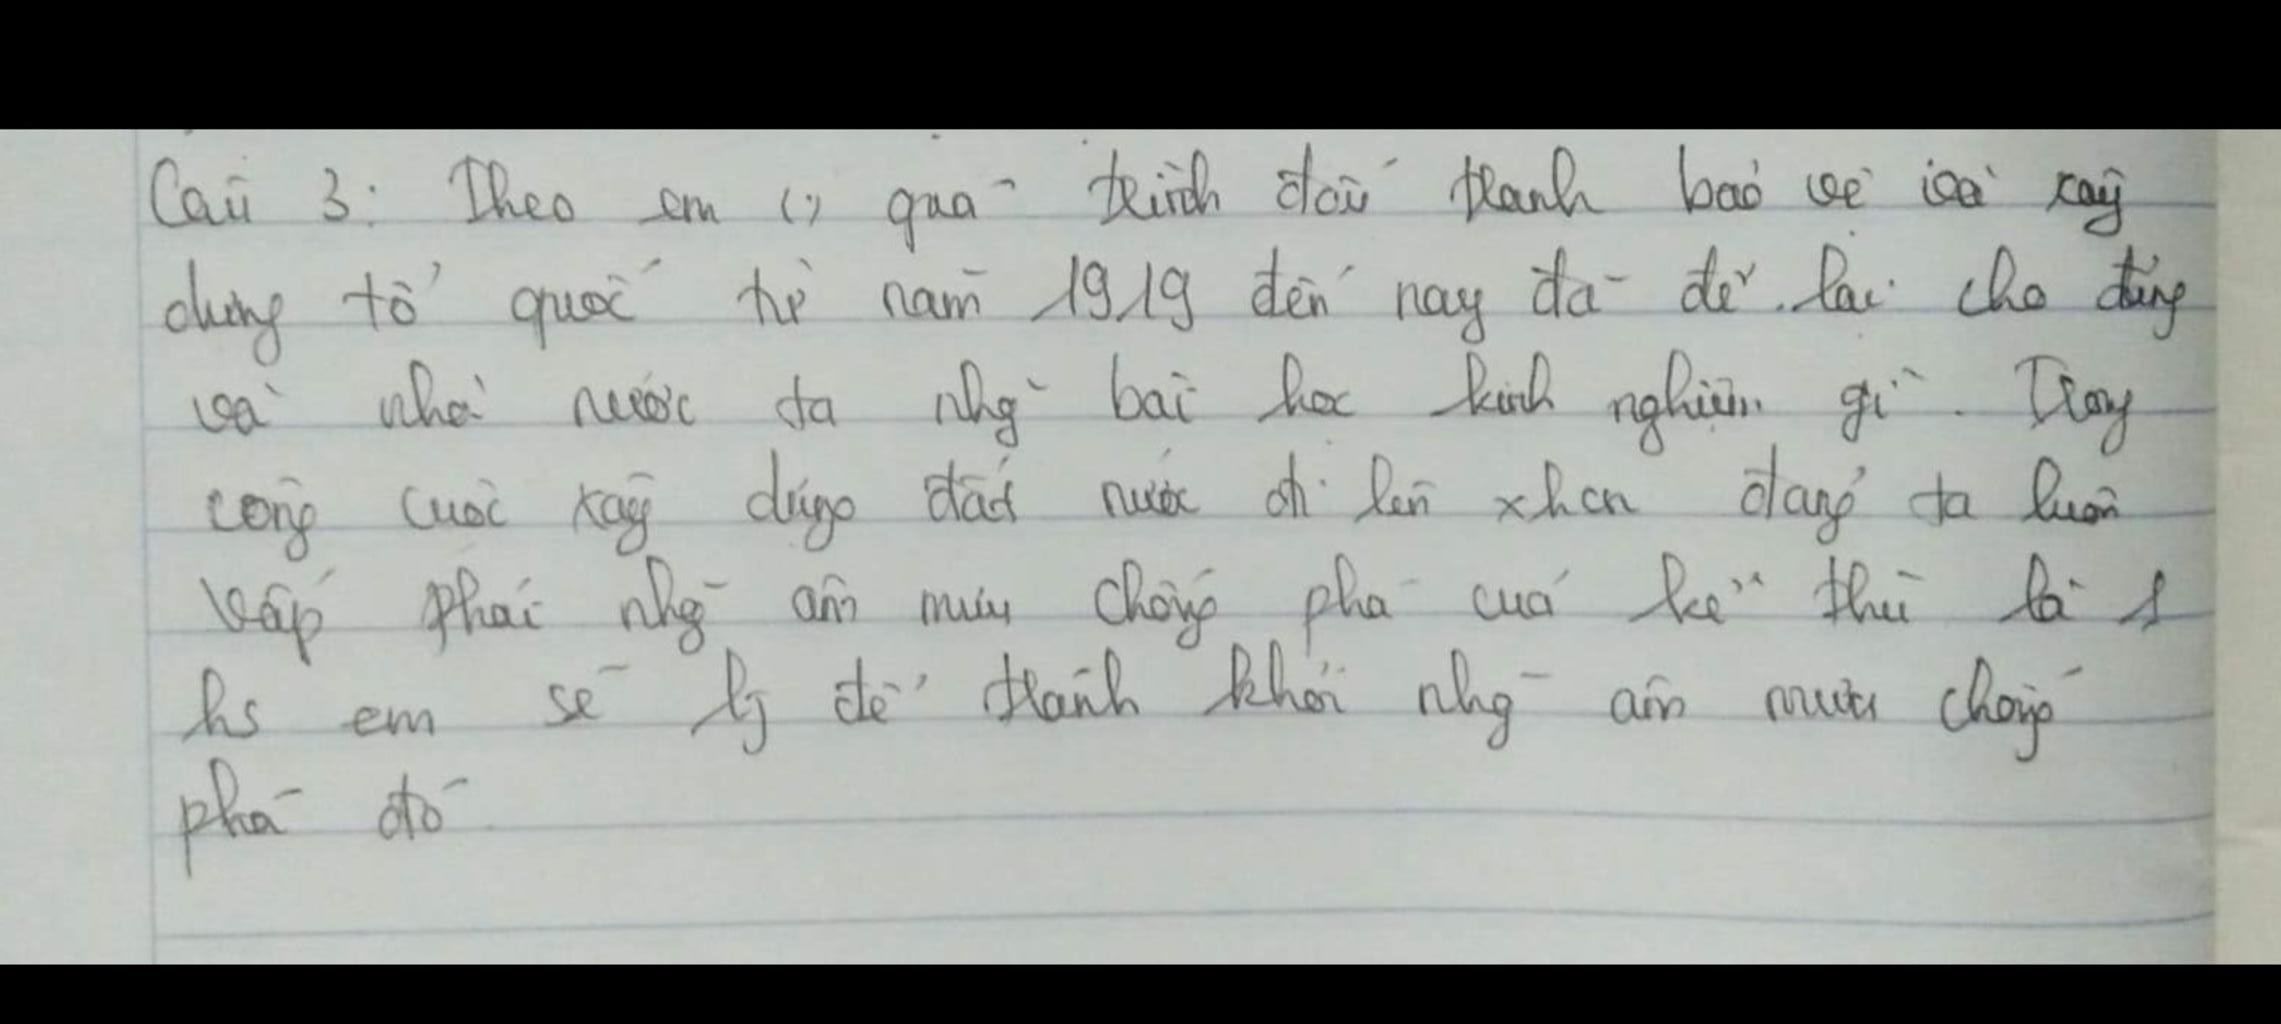 Câu 3: Theo em () quá trình đấu tranh bảo vệ và xây
dựng tổ quốc từ năm 1919 đến nay đã để lại cho đảng
và nhà nước ta nhg~ bài học kinh nghiệm gì. Trong
công cuộc xây dựng đất nước đi lên xhcn đảng ta luôn
vấp phải nhg~ âm mưu chống phá của kẻ thù là 1
hs em sẽ lj để tránh khỏi nhg~ âm mưu chống
phá đó